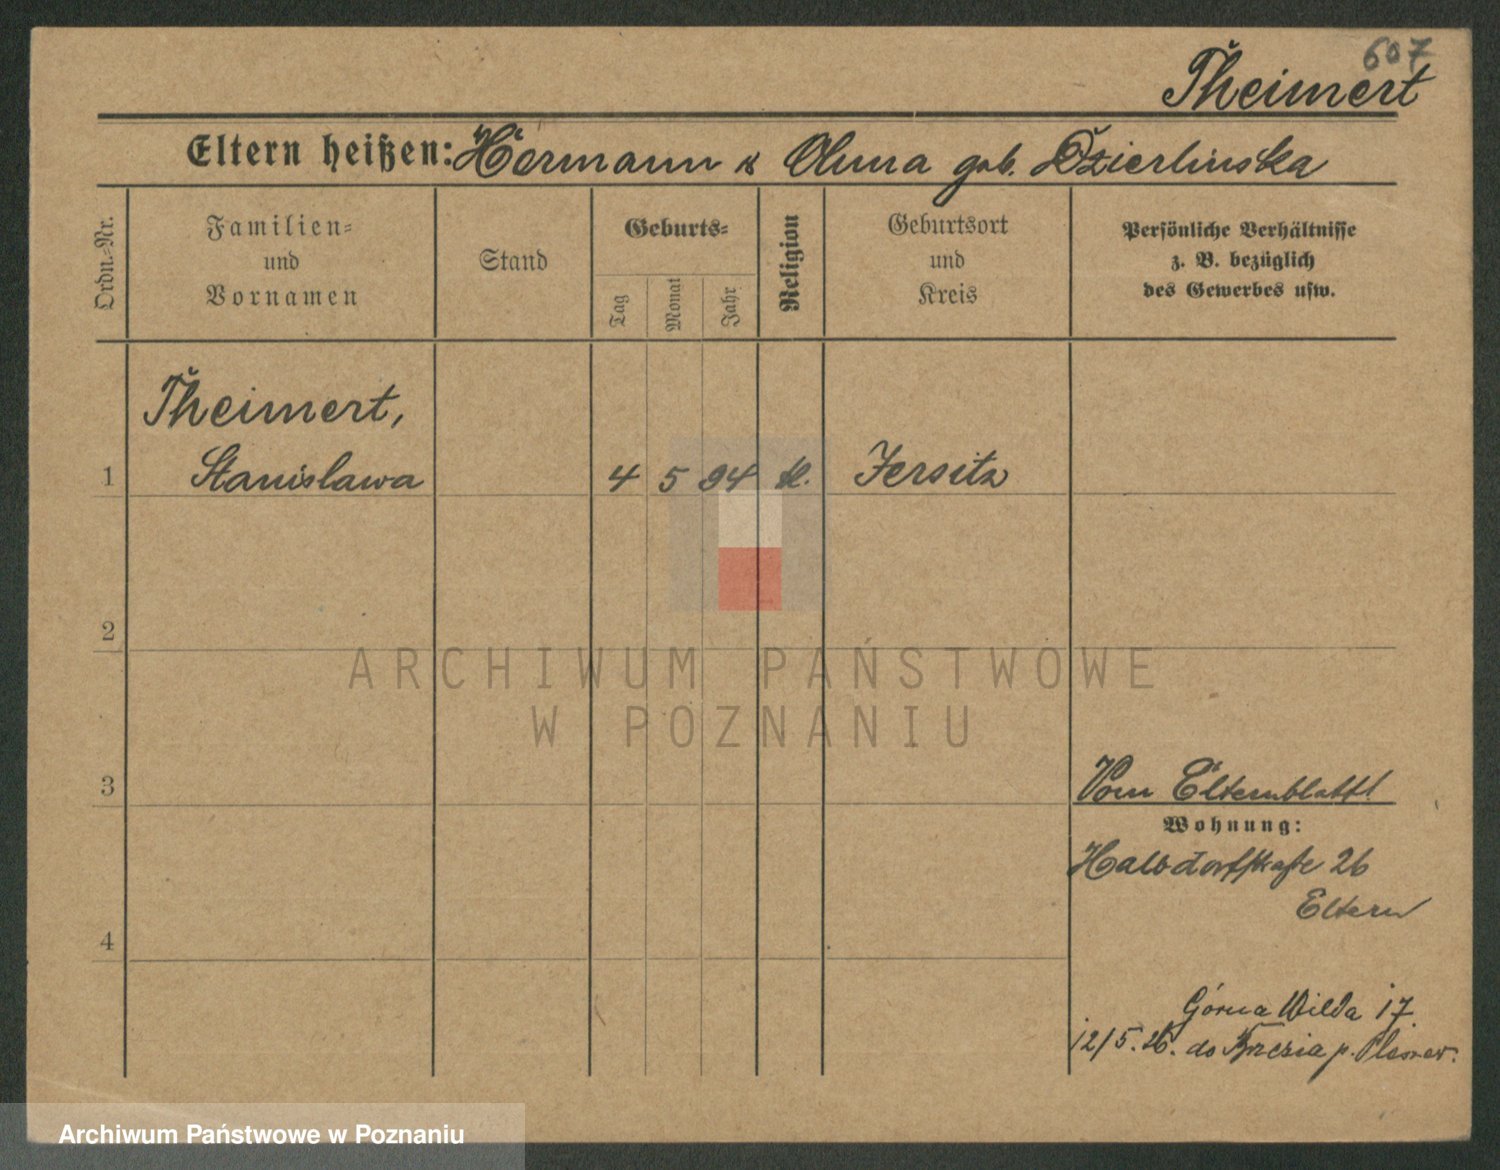 607
Theimert
Eltern heißen: Hermann & Anna geb. Dzierlinska
Ordn.-Nr.
Familien-
und
Vornamen
Stand
Geburts-
Tag
Monat
Jahr
Religion
Geburtsort
und
Kreis
Persönliche Verhältnisse
z. B. bezüglich
des Gewerbes usw.
Theimert,
1 Stanislawa 4 5 94 k. Jersitz
2
ARCHIWUM PAŃSTWOWE
W POZNANIU
3
Vom Elternblatt!
Wohnung:
Halbdorfstraße 26
Eltern
4
Górna Wilda 17.
12/5.26. do p.
Archiwum Państwowe w Poznaniu